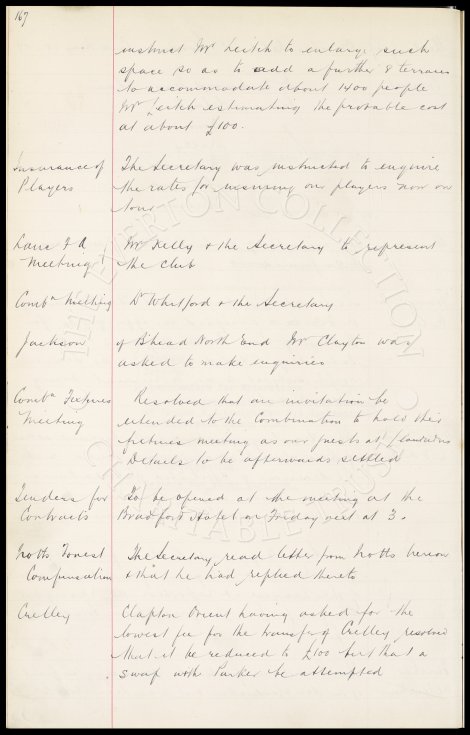 167
instruct Mr Leitch to enlarge such
space so as to add a further 8 terraces
to accommodate about 1400 people
Mr Leitch estimating the probable cost
at about £100.
Insurance of The Secretary was instructed to enquire
Players the rates for insuring our players now on
tour
Lanc F A Mr Kelly & the Secretary to represent
Meeting the Club
Combn Meeting Dr Whitford & the Secretary
Jackson of B'head North End Mr Clayton was
asked to make enquiries
Combn Fixtures Resolved that an invitation be
Meeting extended to the Combination to hold their
fixtures meeting as our guests at Llandudno
Details to be afterwards settled
Tenders for To be opened at the meeting at the
Contracts Bradford Hotel on Friday next at 3.
Notts Forest The Secretary read letter from Notts hereon
Compensation & that he had replied thereto
Crelley Clapton Orient having asked for the
lowest fee for the transfer of Crelley resolved
that it be reduced to £100 but that a
swap with Parker be attempted
THE EVERTON COLLECTION
CHARITABLE